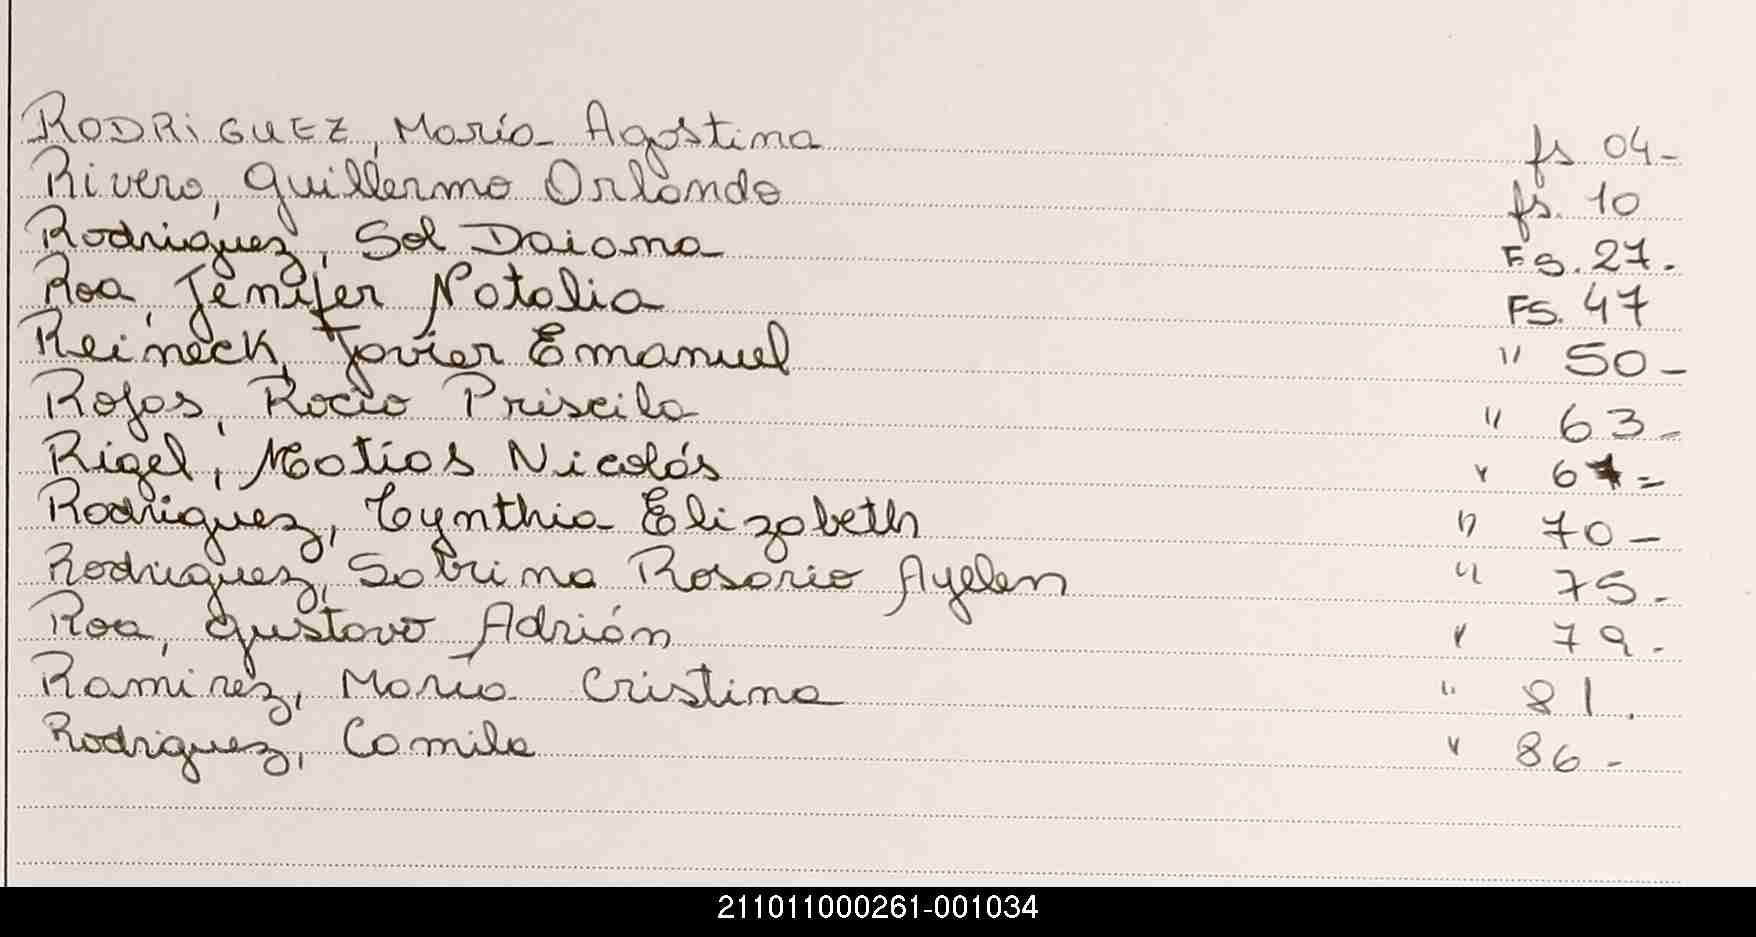 RODRiGUEZ, María Agostina fs 04-
Rivero, Guillermo Orlando fs. 10
Rodriguez, Sol Daiana Fs. 27.
Roa, Jenifer Natalia FS. 47
Reineck, Javier Emanuel " 50-
Rojas, Rocio Priscila " 63-
Rigel, Matias Nicolás "
Rodriguez, Cynthia Elizabeth " 70-
Rodriguez, Sabrina Rosario Ayelen " 75-
Roa, Gustavo Adrián " 79.
Ramirez, María Cristina " 81.
Rodriguez, Camila " 86-
211011000261-001034